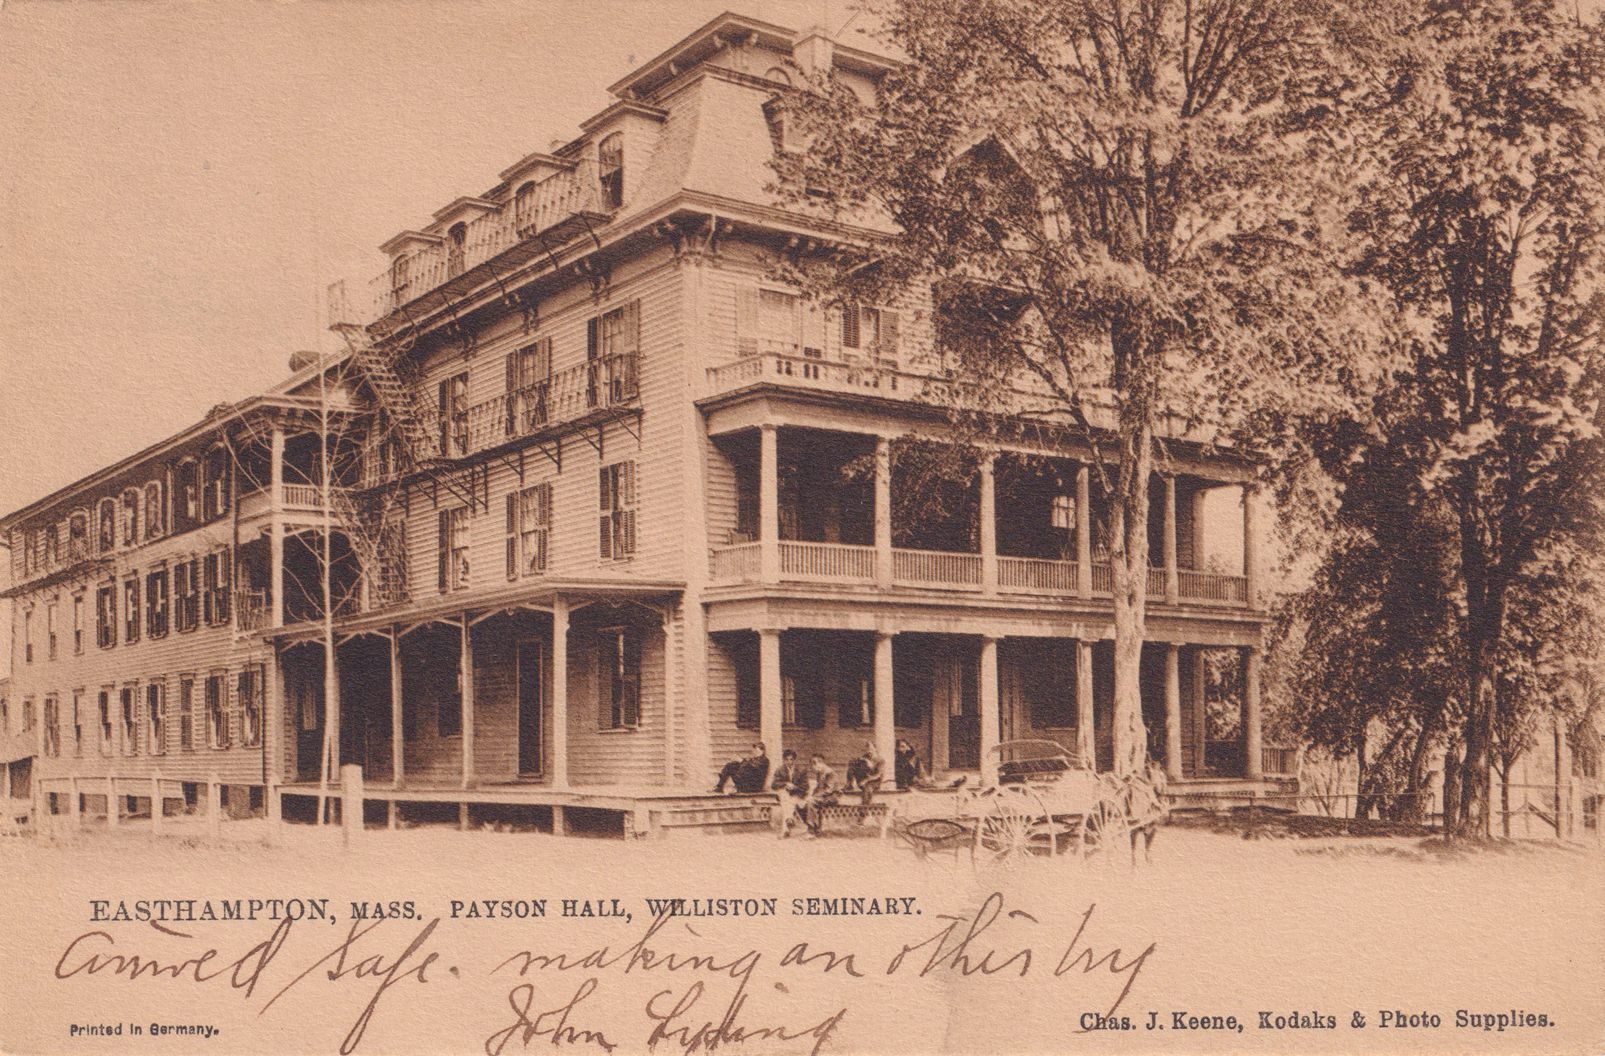 EASTHAMPTON, MASS. PAYSON HALL, WILLISTON SEMINARY.
arrived safe. making an other try
John
Printed in Germany.
Chas. J. Keene, Kodaks & Photo Supplies.